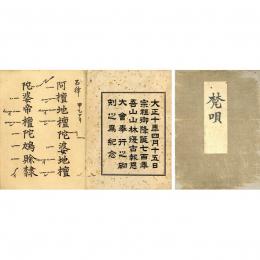 梵唄
大正十年四月十五日
宗祖御降誕七百年
吾山山林報恩
大會奉行之砌
刻之爲紀念
阿檀地檀陀婆地檀
陀婆帝檀陀鳩賖隸